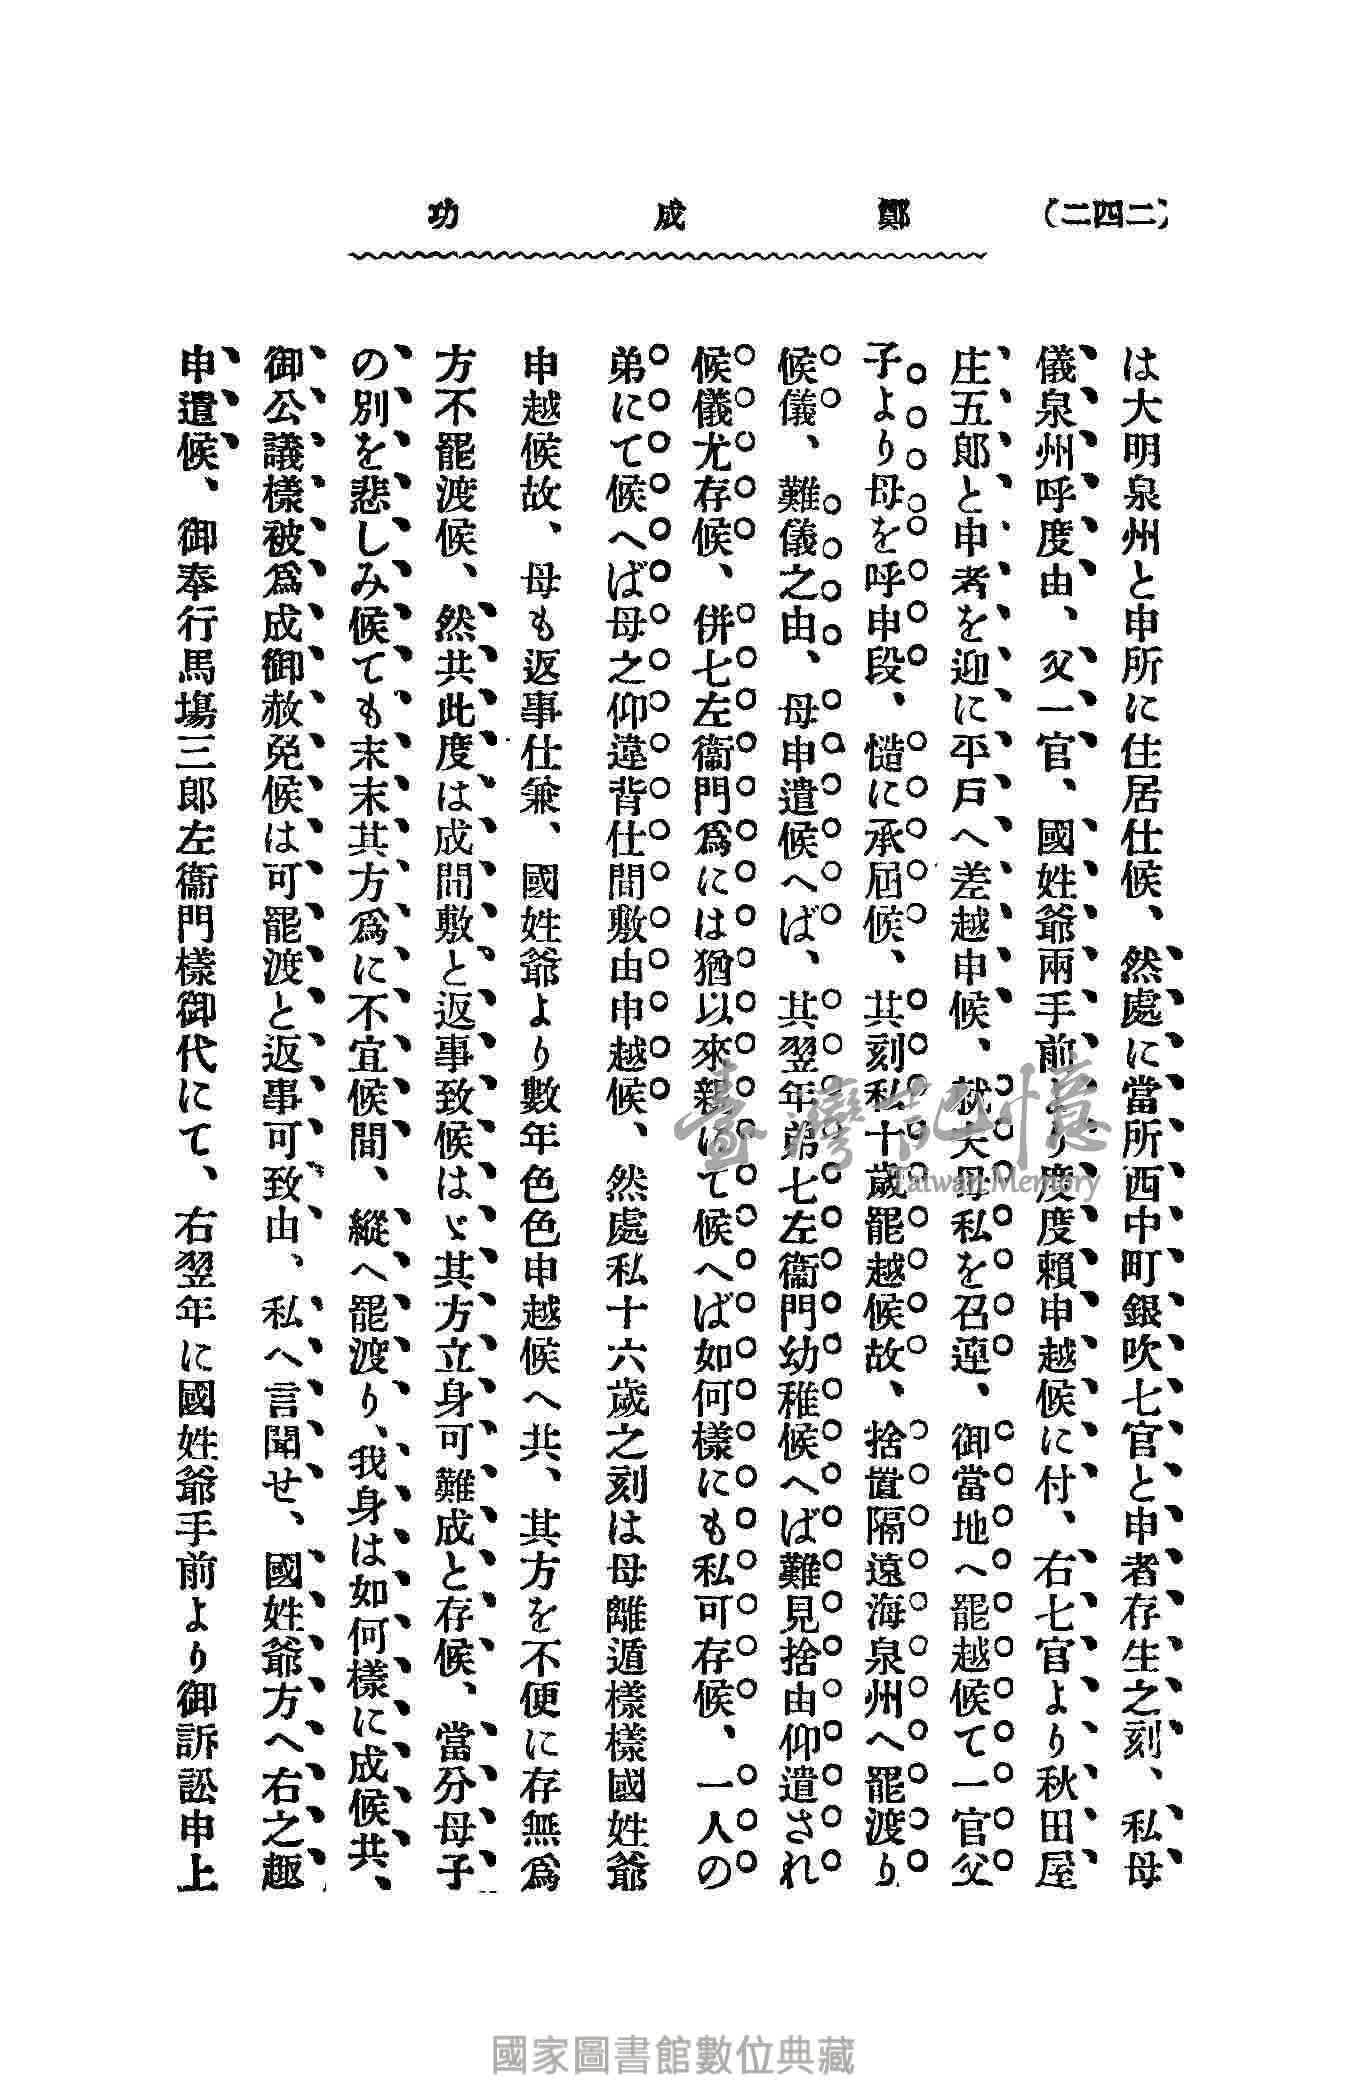 (二四二)
鄭成功
は大明泉州と申所に住居仕候、然處に當所西中町銀吹七官と申者存生之刻、私母
儀泉州呼度由、父一官、國姓爺兩手前より度度賴申越候に付、右七官より秋田屋
庄五郞と申者を迎に平戶へ差越申候、献夫母私を召連、御當地へ罷越候て一官父
子より母を呼申段、慥に承屆候、其刻私十歲罷越候故、捨置隔遠海泉州へ罷渡り
候儀、難儀之由、母申遣候へば、其翌年弟七左衞門幼稚候へば難見捨由仰遣され
候儀尤存候、併七左衞門爲には猶以來親にて候へば如何樣にも私可存候、一人の
弟にて候へば母之仰違背仕間敷由申越候、然處私十六歲之刻は母離遁樣樣國姓爺
申越候故、母も返事仕兼、國姓爺より數年色色申越候へ共、其方を不便に存無爲
方不罷渡候、然共此度は成間敷と返事致候はゞ其方立身可難成と存候、當分母子
の別を悲しみ候ても末末其方爲に不宜候間、縱へ罷渡り、我身は如何樣に成候共、
御公議樣被爲成御赦免候は可罷渡と返事可致由、私へ言聞せ、國姓爺方へ右之趣
申遣候、御奉行馬塲三郞左衞門樣御代にて、右翌年に國姓爺手前より御訴訟申上
臺灣記憶
Taiwan Memory
國家圖書館數位典藏